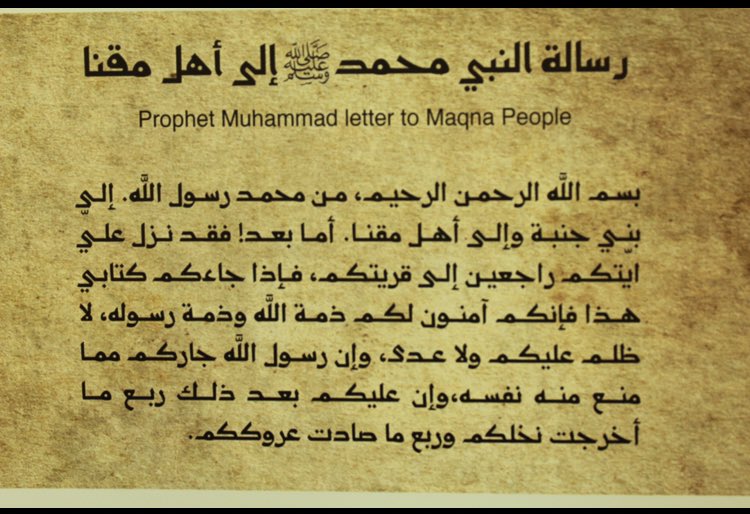 رسالة النبي محمد ﷺ إلى أهل مقنا
Prophet Muhammad letter to Maqna People
بسم الله الرحمن الرحيم، من محمد رسول الله. إلى
بني جنبة وإلى أهل مقنا. أما بعد! فقد نزل عليّ
ايتكم راجعين إلى قريتكم، فإذا جاءكم كتابي
هذا فإنكم آمنون لكم ذمة الله وذمة رسوله، لا
ظلم عليكم ولا عدى، وإن رسول الله جاركم مما
منع منه نفسه،وإن عليكم بعد ذلك ربع ما
أخرجت نخلكم وربع ما صادت عروككم.